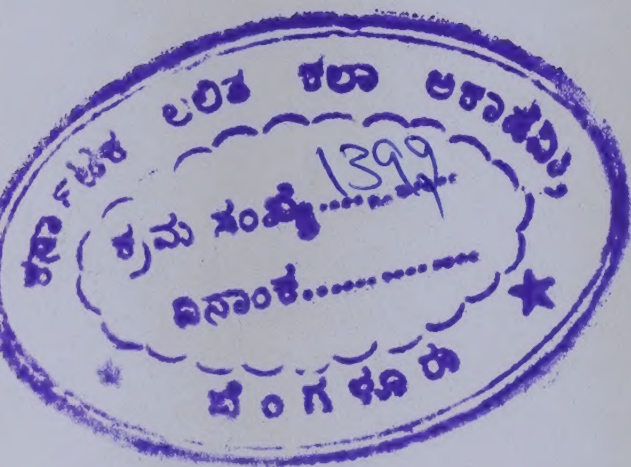 ಕರ್ನಾಟಕ ಲಲಿತ ಕಲಾ ಅಕಾಡೆಮಿ
ಕ್ರಮ ಸಂಖ್ಯೆ 1399
ದಿನಾಂಕ
ಬೆಂಗಳೂರು